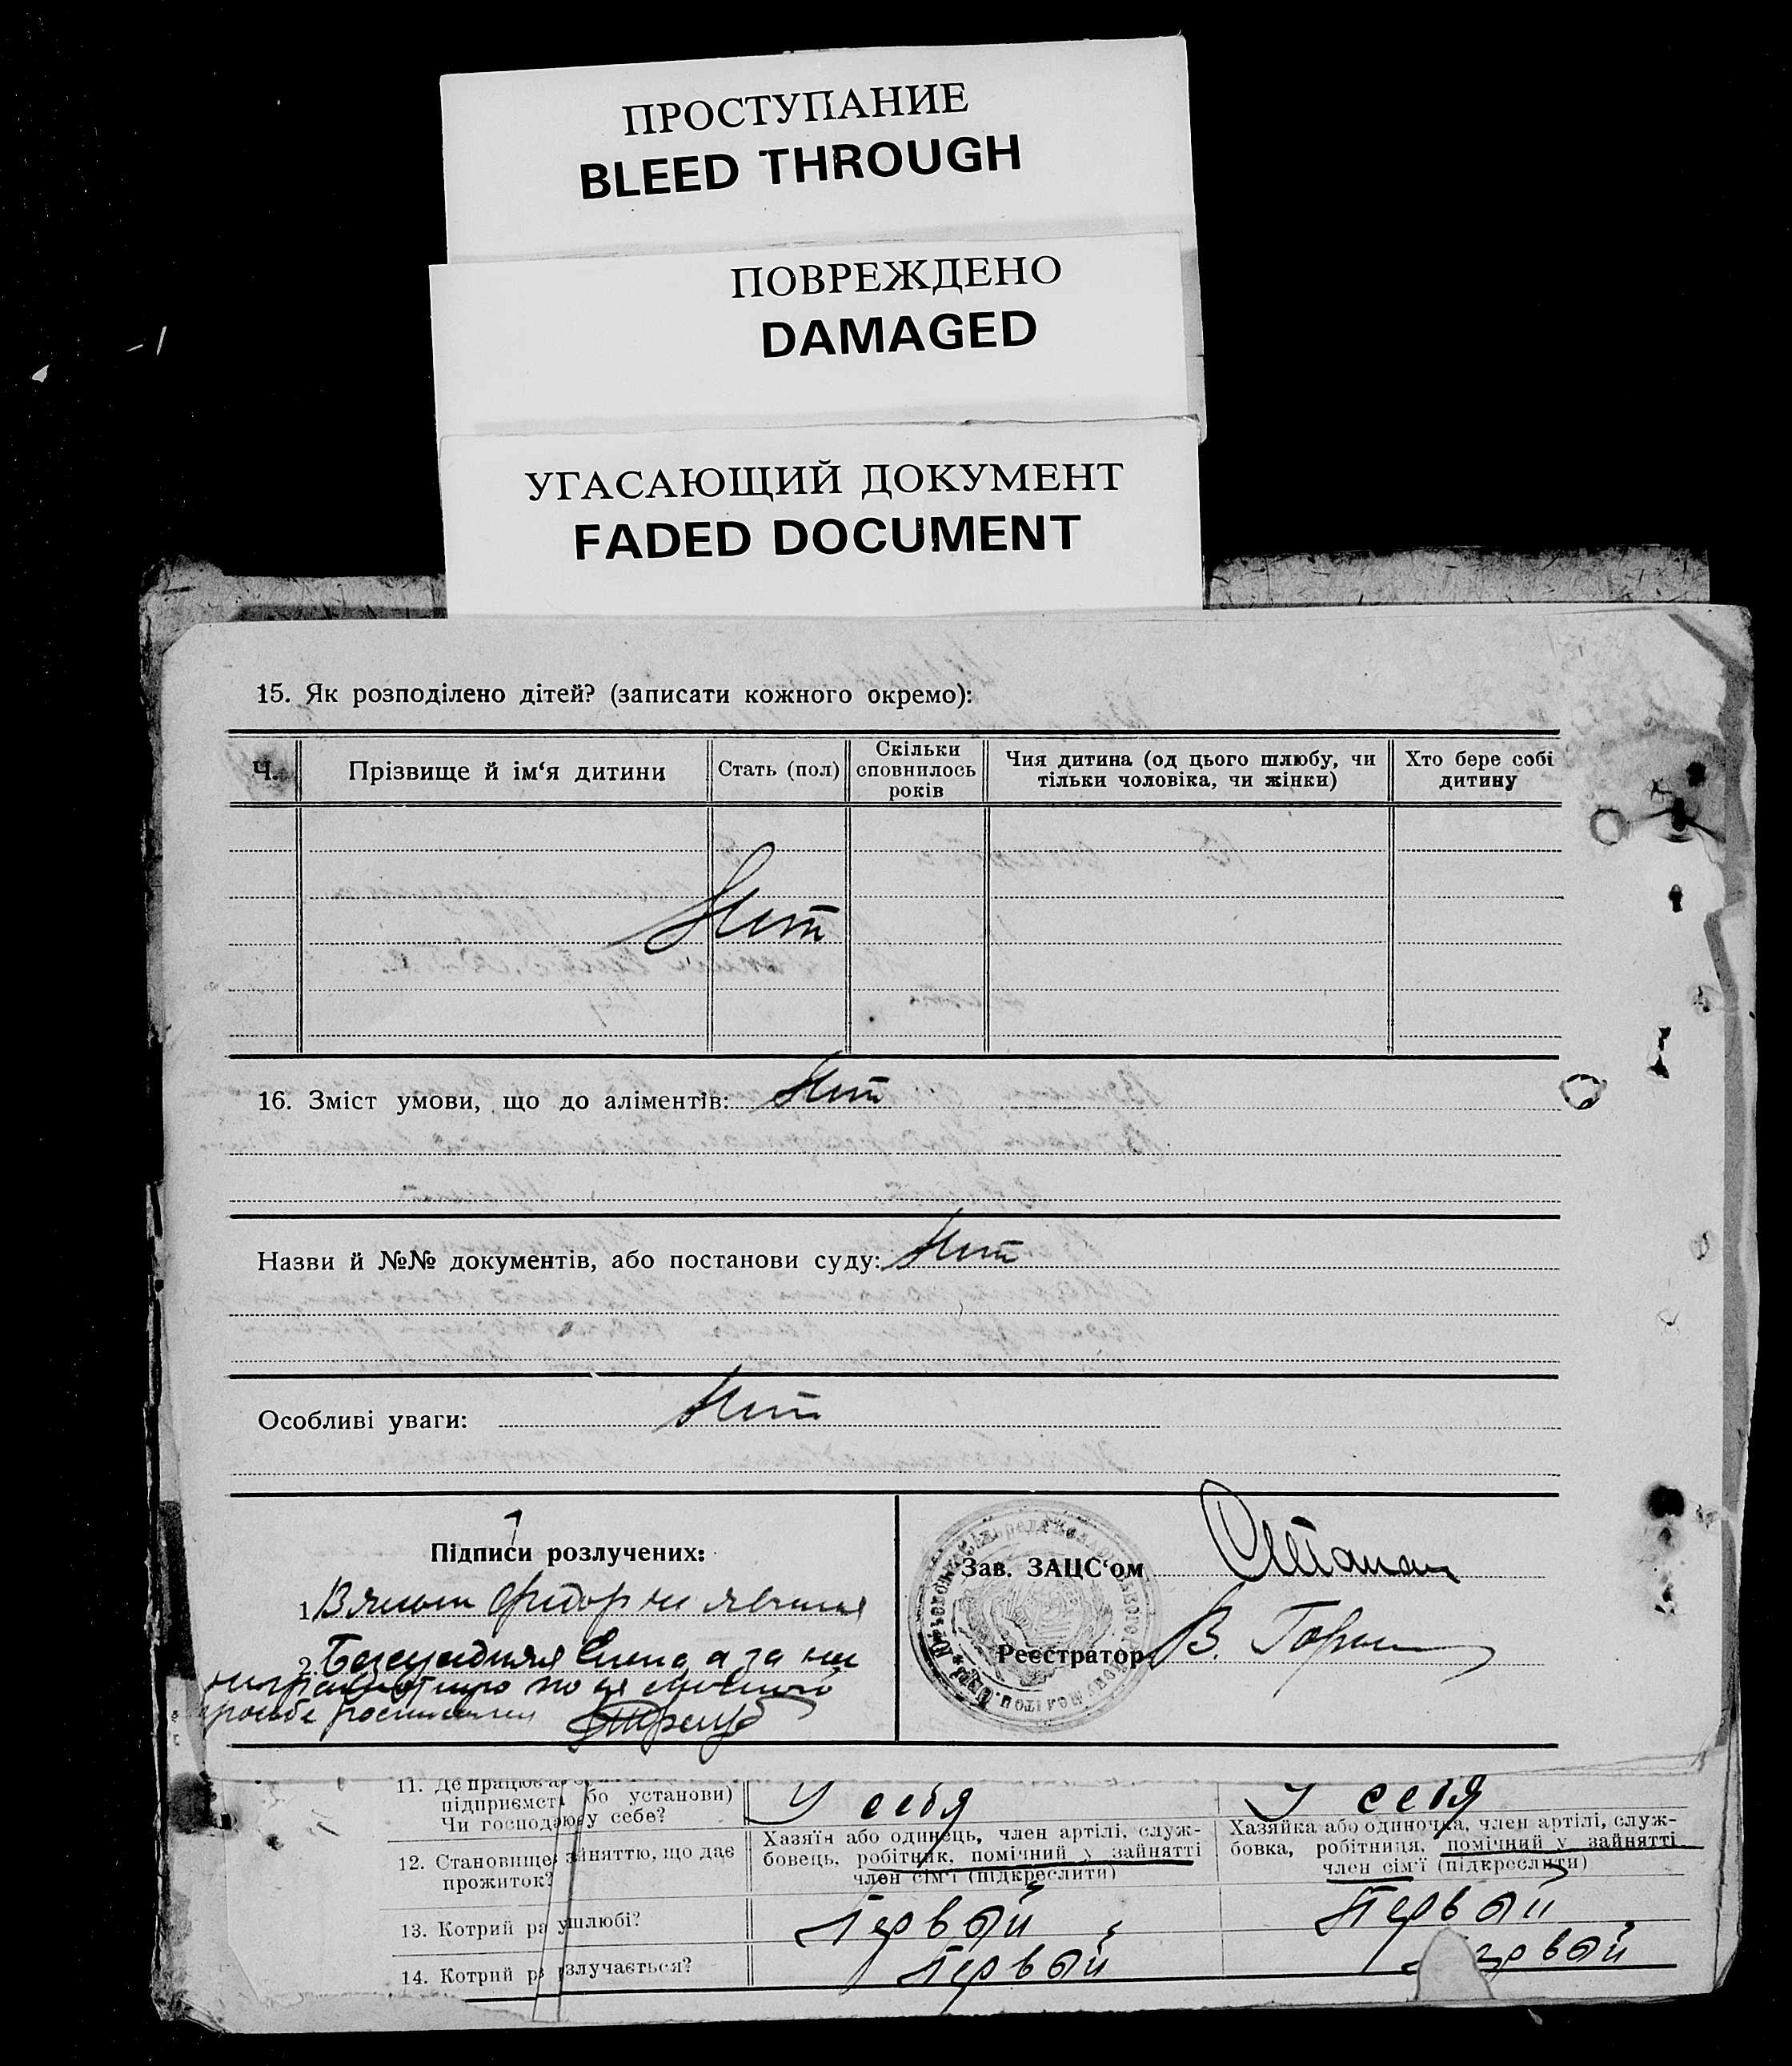 ПРОСТУПАНИЕ
BLEED THROUGH
ПОВРЕЖДЕНО
DAMAGED
УГАСАЮЩИЙ ДОКУМЕНТ
FADED DOCUMENT
15. Як розподілено дітей? (записати кожного окремо):
Ч.
Прізвище й ім‘я дитини
Стать (пол)
Скільки
сповнилось
років
Чия дитина (од цього шлюбу, чи
тільки чоловіка, чи жінки)
Хто бере собі
дитину
Нет
16. Зміст умови, що до аліментів: Нет
Назви й №№ документів, або постанови суду: Нет
Особливі уваги: Нет
Підписи розлучених:
1. Фидор не явился
2. а за не
росписался
Зав. ЗАЦС‘ом
Реєстратор В.
11. Де працює
підприємст бо установи)
Чи господарює у себе?
У себя
У себя
12. Становище зайняттю, що дає
прожиток?
Хазяїн або одинець, член артілі, служ-
бовець, робітник, помічний у зайнятті
член сім‘ї (підкреслити)
Хазяйка або одиночка, член артілі, служ-
бовка, робітниця, помічний у зайнятті
член сім‘ї (підкреслити)
13. Котрий ра у шлюбі?
Первый
Первый
14. Котрий р злучається?
Первый
рвый